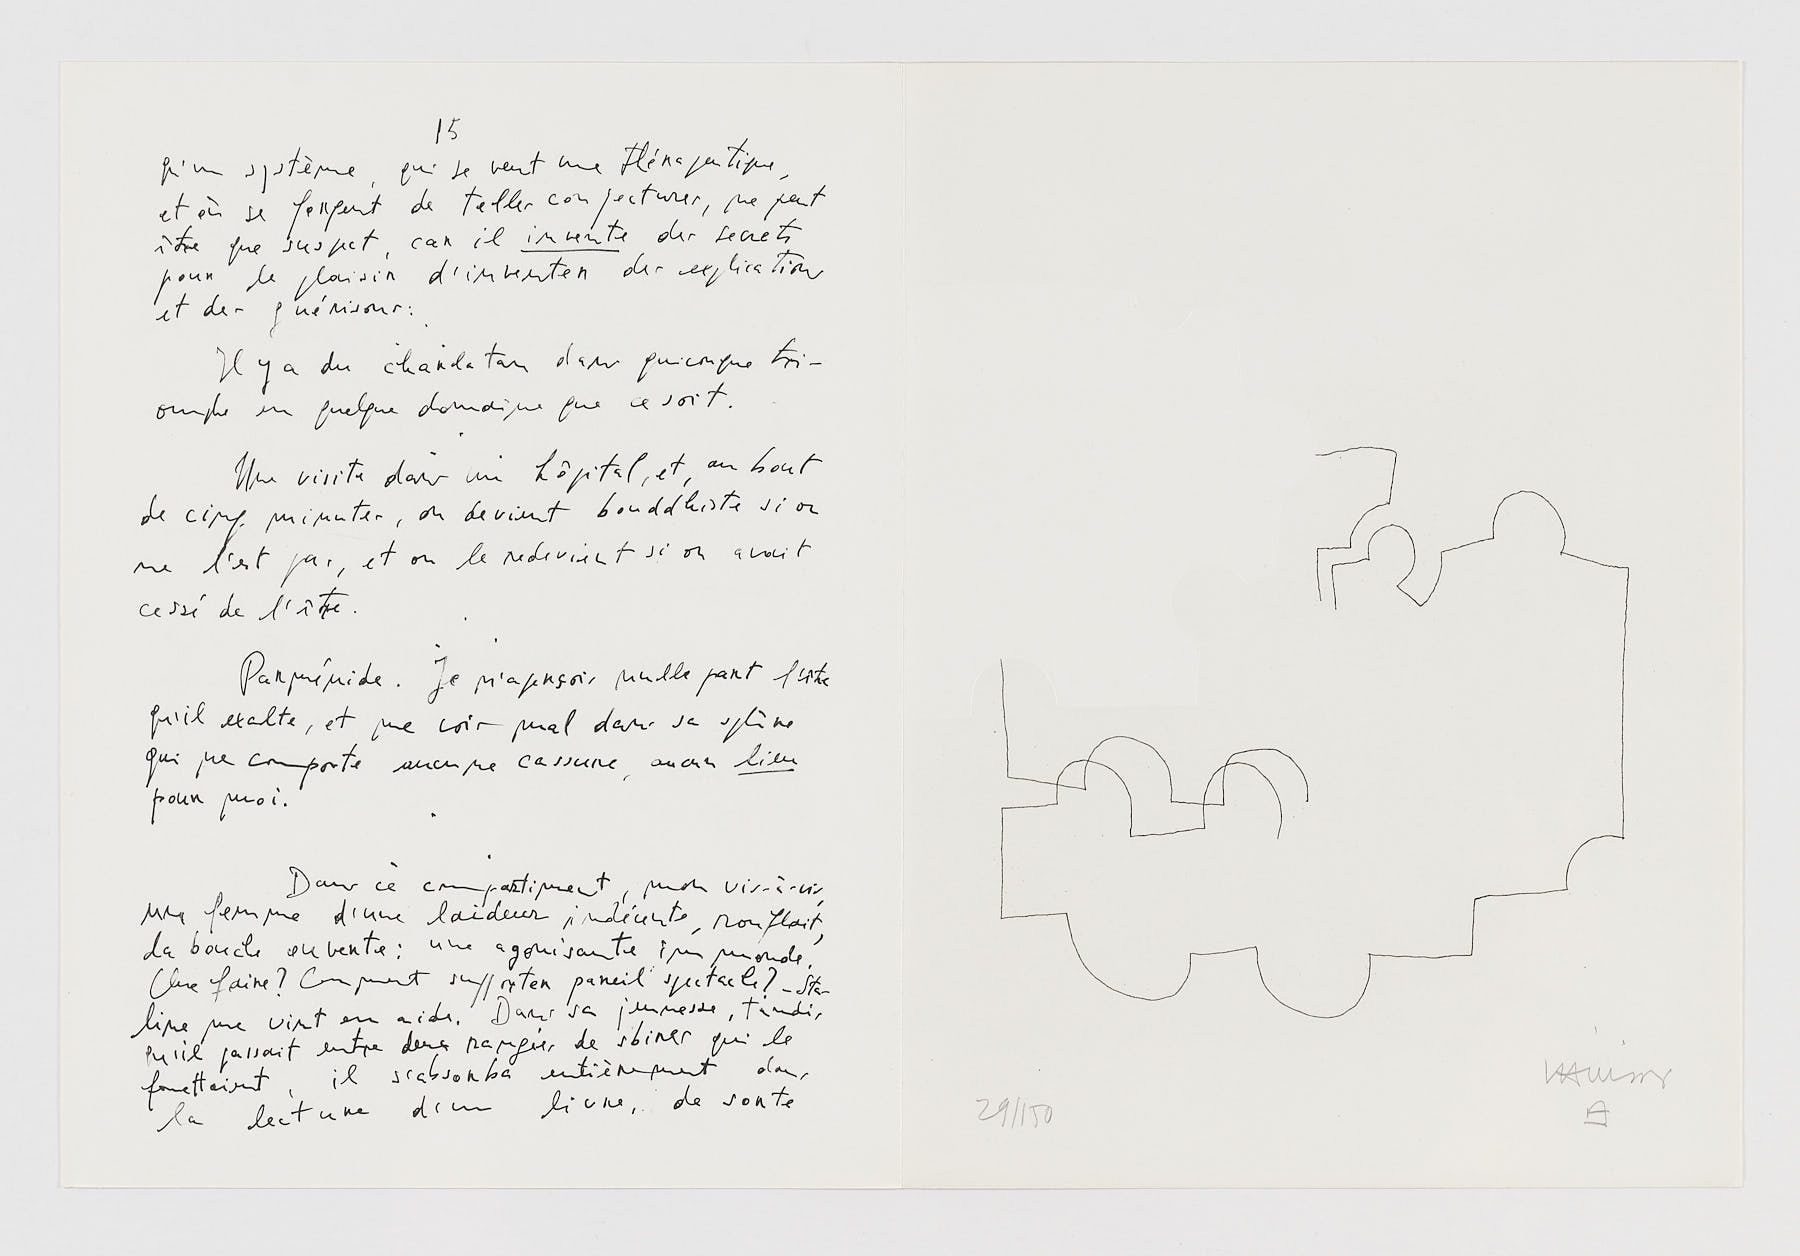 15
qu'un système, qui se veut une thérapeutique,
et où se forgent de telles conjectures, ne peut
être que suspect, car il invente des secrets
pour le plaisir d'inventer des explications
et des guérisons.
Il y a du charlatan dans quiconque tri-
omphe en quelque domaine que ce soit.
Une visite dans un hôpital, et, au bout
de cinq minutes, on devient bouddhiste si on
ne l'est pas, et on le redevient si on avait
cessé de l'être.
Parménide. Je n'aperçois nulle part l'être
qu'il exalte, et me vois mal dans sa sphère
qui ne comporte aucune cassure, aucun lieu
pour moi.
Dans ce compartiment, mon vis-à-vis,
une femme d'une laideur indécente, ronflait,
la bouche ouverte: une agonisante immonde.
Que faire? Comment supporter pareil spectacle? – Sta-
line me vint en aide. Dans sa jeunesse, tandis
qu'il passait entre deux rangées de sbires qui le
fouettaient, il s'absorba entièrement dans
la lecture d'un livre, de sorte
29/150